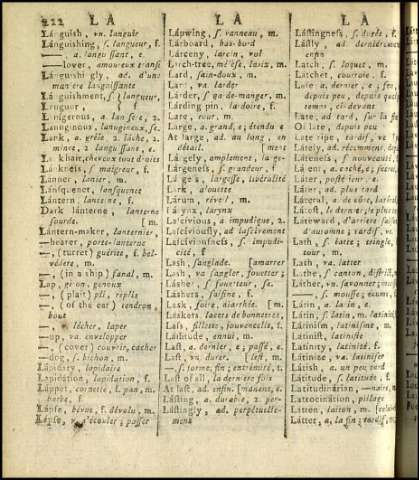 222 L A
Lánguish, vn. languir
Lánguishing, s. langueur, f.
—, a. languissant, e.
—lover, amoureux transi
Lánguishingly, ad. d'une
manière languissante
Lánguishment, s. langueur
Lánguor, langueur
Lanígerous, a. lanifère, 2.
Lanúginous, lanugineux, se.
Lank, a. grêle, 2. lâche, 2.
mince, 2. languissant, e.
Lánk hair, cheveux tout droits
Lánkness, s. maigreur, f.
Lánner, lanier, m.
Lánsquenet, lansquenet
Lántern, lanterne, f.
Dark lánterne, lanterne
sourde. [m.
Lántern-maker, lanternier,
—bearer, porte-lanterne
—, (turret) guérite, f. bel-
védère, m.
—, (in a ship) fanal, m.
Lap, giron, genoux
—, (plait) pli, replis
—, (of the ear) tendron,
bout
—, lécher, laper
—up, va. envelopper
—, (cover) couvrir, cacher
—dog, s. bichon, m.
Lápidary, lapidaire
Lapidátion, lapidation, f.
Láppet, cornette, f. pan, m.
barbe, f.
Lápse, bévue, f. dévolu, m.
Lápse, s'écouler; passer
L A
Lápwing, s. vanneau, m.
Lárboard, bas-bord
Lárceny, larcin, vol
Lárch-tree, mélèse, larix, m.
Lárd, sain-doux, m.
Lard, va. larder
Lárder, s. garde-manger, m.
Lárding pin, lardoire, f.
Lare, tour, m.
Large, a. grand, e; étendu e
At large, ad. au long, en
détail.
Lárgely, amplement, large-
Lárgeness, s. grandeur, f
Lárgess, largesse, libéralité
Lark, alouette
Lárum, réveil, m.
Lárynx, larynx
Lascívious, a. impudique, 2.
Lascíviously, ad lascivement
Lascíviousness, s. impudi-
cité, f.
Lash, sanglade. [amarrer
Lash, va sangler, fouetter;
Lásher, s fouetteur, se.
Láshers, saisine, f.
Lask, foire, diarrhée. [m.
Láskets, lacets de bonnettes,
Lass, fillette, jouvencelle, f.
Lássitude, ennui, m.
Last, a. dernier, e; passé, e.
Last, vn. durer. [lest, m.
—, s. forme, fin; extrémité, f.
Last of all, la dernière fois
At last, ad. enfin. [manent, e.
Lásting, a. durable, 2. per-
Lástingly, ad. perpétuelle-
ment
L A
Lástingness, s. durée, f.
Lástly, ad dernièrement
enfin
Latch, s. loquet, m.
Látchet, courroie, f.
Late, a. dernier, e; feu,
depuis peu, depuis quelque
temps; ci-devant
Late, ad tard, sur la fin
Of late, depuis peu
Late ripe, tardif, ve
Látely, ad. récemment, depuis
Láteness, s nouveauté, f
Látent, a. caché, e; secret,
Láter, postérieur, e.
Láter, ad. plus tard
Láteral, a. de côté, latéral,
Látest, le dernier; le plus tard
Láteward, d'arrière saison
d'automne; tardif, ve
Lath, s. latte; tringle,
tour, m.
Lath, va. latter
Láthe, s. canton, district,
Láther, vn. savonner; mousser
—, s. mousse, écume, f.
Látin, a. latin, e.
Látin, s. latin, latinité, m.
Látinism, latinisme, m.
Látinist, latiniste
Latínity, latinité, f.
Látinize, va latiniser
Látish, a. un peu tard
Látitude, s. latitude, f.
Latitudinárian, —naire,
Latrocinátion, pillage
Látten, laiton, m.
Látter, a, la fin; tardif,